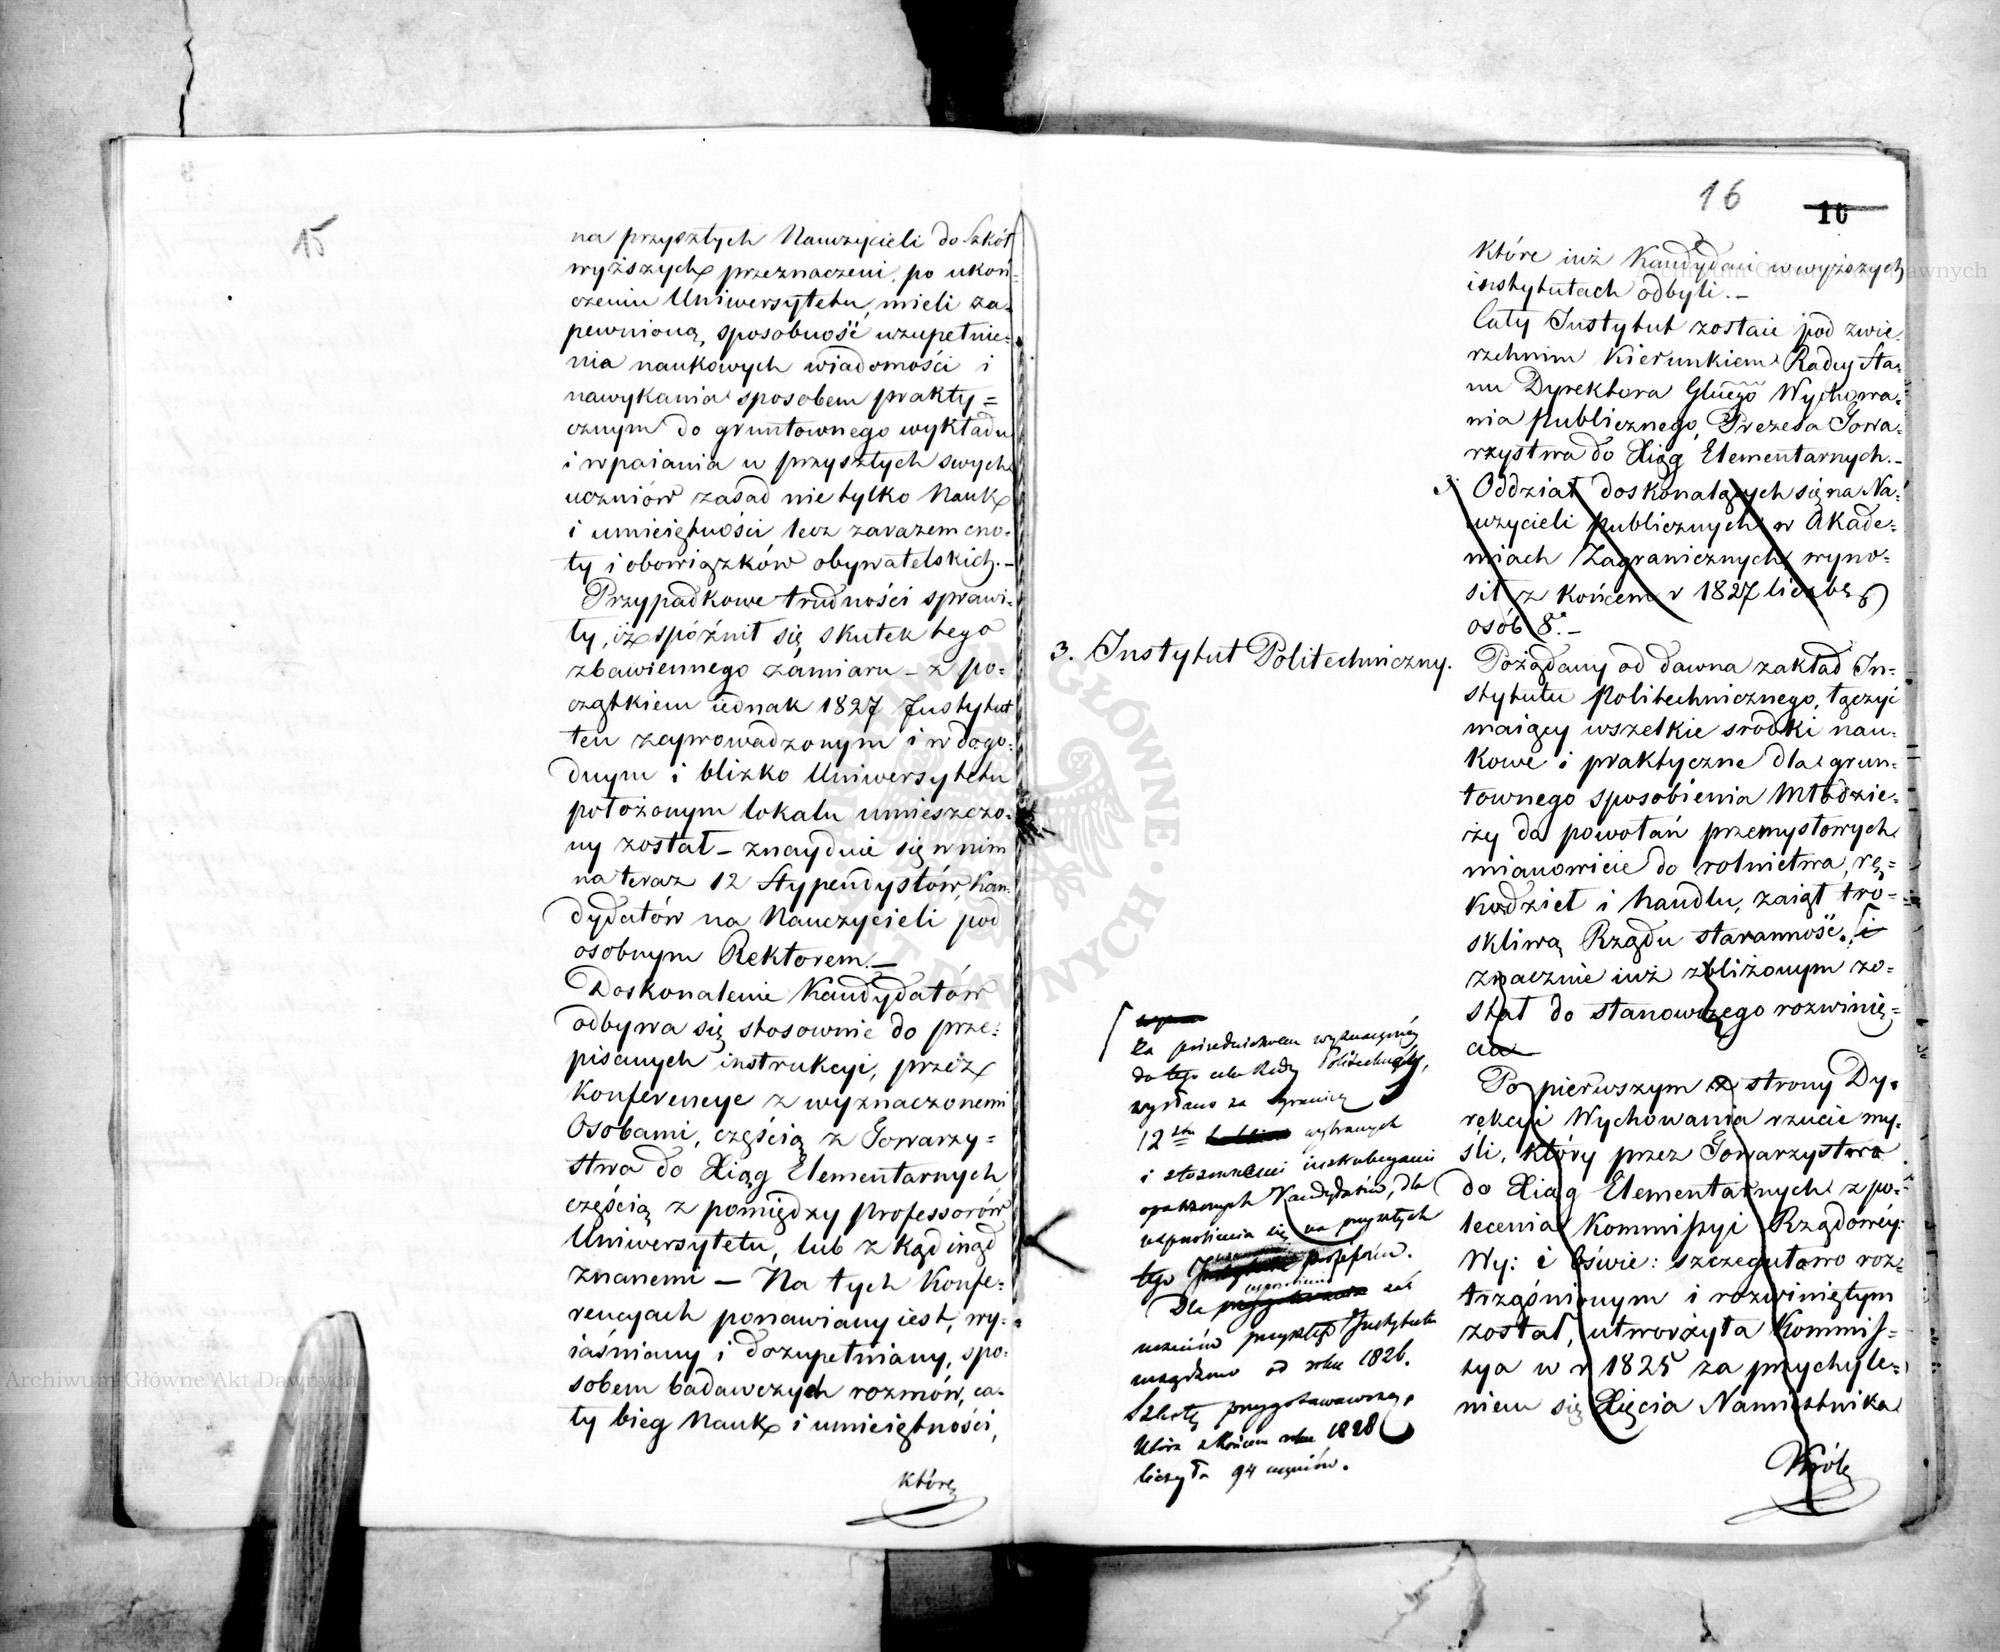 15
na przyszłych Nauczycieli do Szkół
wyższych przeznaczeni, po ukoń-
czeniu Uniwersytetu, mieli za-
pewnioną sposobność uzupełnie-
nia naukowych wiadomości i
nawykania sposobem prakty=
cznym do gruntownego wykładu
i wpaiania w przyszłych swych
uczniów zasad nie tylko Nauk
i umieiętności, lecz zarazem cno-
ty i obowiązków obywatelskich.-
Przypadkowe trudności sprawi-
ły, iż spóźnił się skutek tego
zbawiennego zamiaru - z po-
czątkiem iednak 1827 Instytut
ten zaprowadzonym i w dogo-
dnym i blizko Uniwersytetu
położonym lokalu umieszczo-
ny został - znayduie się w nim
na teraz 12 Stypendystów, Kan-
dydatów na Nauczycieli, pod
osobnym Rektorem.-
Doskonalenie Kandydatów
odbywa się stosownie do prze-
pisanych instrukcyi, przez
Konferencye z wyznaczonemi
Osobami, częścią z Towarzy=
stwa do Xiąg Elementarnych
częścią z pomiędzy Professorów
Uniwersytetu, lub z kąd inąd
znanemi - Na tych Konfe-
rencyach ponawiany iest, wy-
iaśniany i dozupełniany, spo-
sobem badawczych rozmów, ca-
ły bieg Nauk i umieiętności,
które
16
16
które iuż Kandydaci w wyższych
instytutach odbyli.-
Cały Instytut zostaie pod zwie-
rzchnim Kierunkiem Radcy Sta-
nu Dyrektora Głuego Wychowa-
nia publicznego, Prezesa Towa-
rzystwa do Xiąg Elementarnych.-
Oddział doskonalących się na Na-
uczycieli publicznych w Akade-
miach Zagranicznych wyno-
sił z końcem r 1827 liczbę
osób 8.-
3. Instytut Politechniczny.
Pożądany od dawna zakład In-
stytutu Politechnicznego, łączyć
maiący wszelkie srodki nau-
kowe i praktyczne dla grun-
townego sposobienia Młodzie-
ży do powołań przemysłowych
mianowicie do rolnictwa, rę-
kodzieł i handlu, zaiął tro-
skliwą Rządu staranność, i
znacznie iuż zbliżonym zo-
stał do stanowczego rozwinię-
cia
Po pierwszym ze strony Dy-
rekcyi Wychowania rzucie my-
śli, który przez Towarzystwo
do Xiąg Elementarnych z po-
lecenia Kommissyi Rządowéy
Wy: i Oświe: szczegułowo roz-
trząśnionym i rozwiniętym
został, utworzyła Kommis-
sya w r 1825 za przychyle-
niem się Xięcia Namiestnika
Króle
Za pośrednictwem wyznaczonéy
do tego celu Rady Politechnicznéy,
wysłano za granicę
12stu wybranych
i stosownemi instrukcyami
opatrzonych Kandydatów, dla
usposobienia się na przyszłych
tego professorów.
Dla usposobienia zaś
uczniów przyszłego Instytutu
urządzono od roku 1826.
Szkołę przygotowawczą,
która z końcem roku 1828
liczyła 94 uczniów.